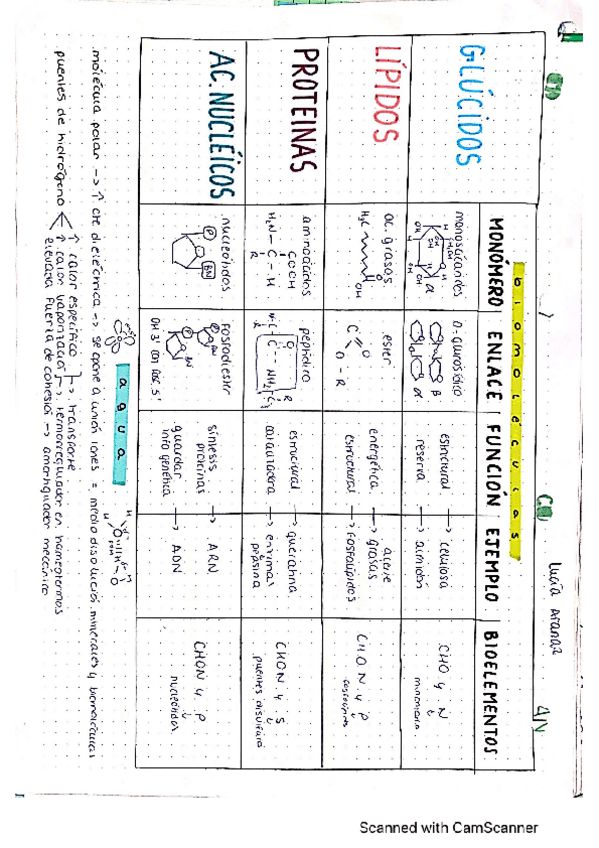 Lucía Arana2
4N
biomoléculas
MONÓMERO ENLACE FUNCIÓN EJEMPLO BIOELEMENTOS
GLÚCIDOS
monosacáridos
o. glucosídico
estructural → celulosa
reserva → almidón
CHO y N
LÍPIDOS
ac. grasos
H3C OH
ester
C O O - R
energética → aceite grasas
estructural → fosfolípidos
CHON y P
PROTEINAS
aminoácidos
COOH
H2N - C - H
R
peptídico
estructural → queratina
catalizadora → enzimas pepsina
CHON y S
puentes disulfuro
AC. NUCLÉICOS
nucleótidos
P BN
fosfodiester
OH 3' con fosf. 5'
síntesis proteínas → ARN
guardar info genética → ADN
CHON y P
nucleótidos
agua
molécula polar → ↑ cte dieléctrica → se opone a unión iones = medio disolución minerales y biomoléculas
puentes de hidrógeno
↑ calor específico
↑ calor vaporización
→ transporte
→ termorregulador en homeotermos
elevada fuerza de cohesión → amortiguador mecánico
Scanned with CamScanner